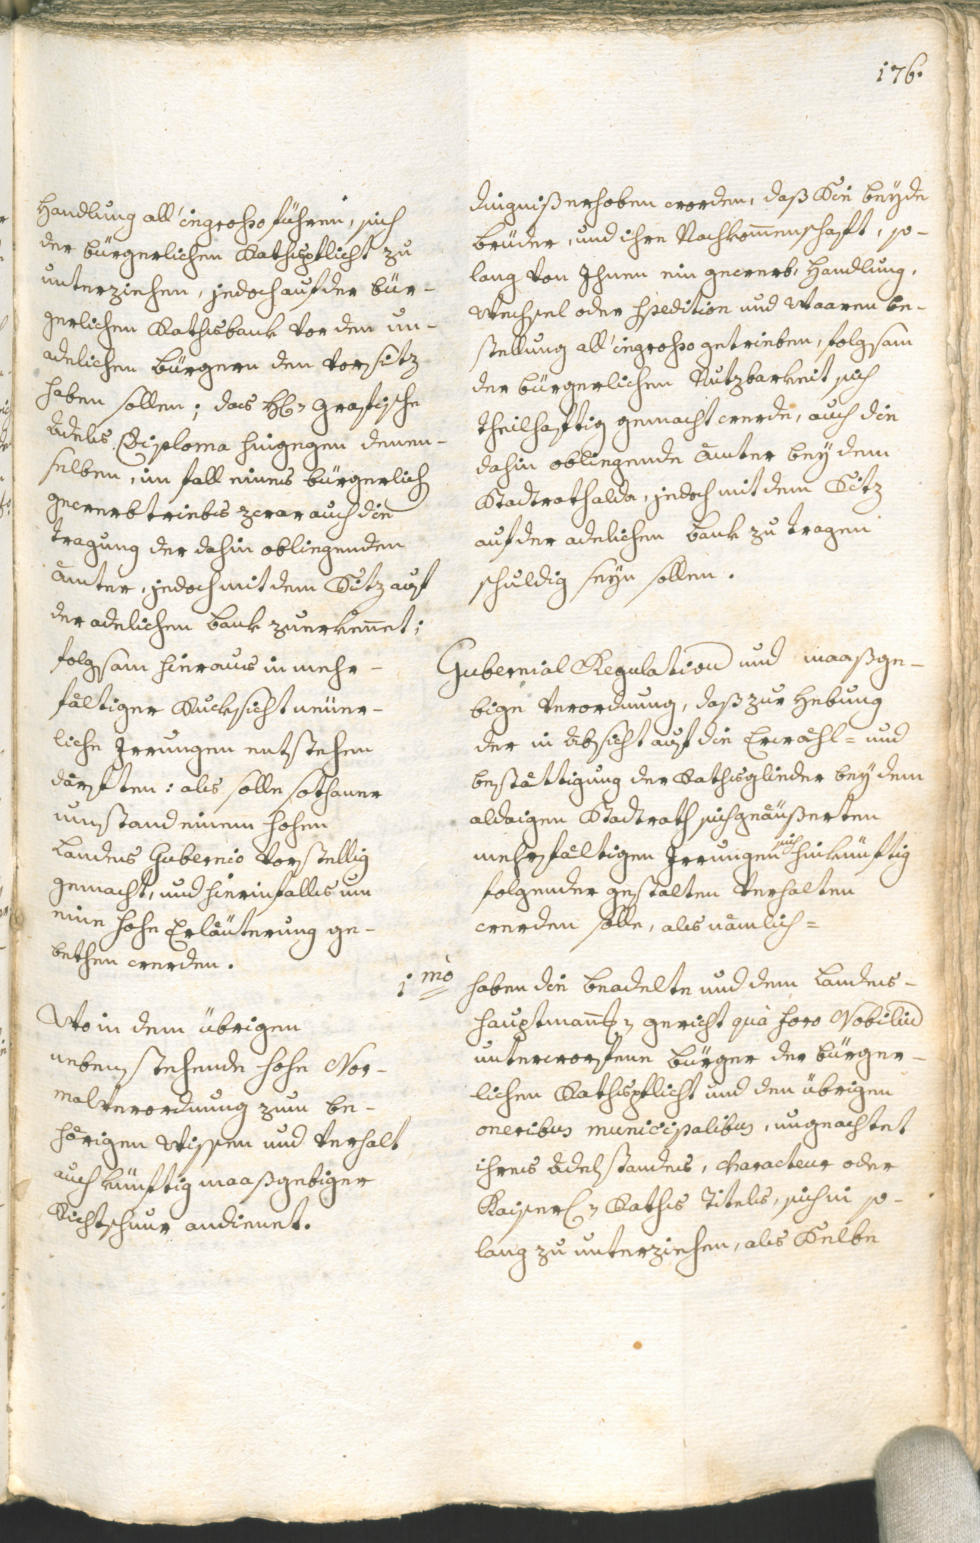 176.
Handlung all'ingrosso führen, sich
der bürgerlichen Rathspflicht zu
unterziehen, jedoch auf der bür-
gerlichen Rathsbank vor den un-
adelichen Bürgern den Vorsitz
haben sollen; das Grafische
Adels Diploma hingegen denen-
selben, im fall eines bürgerlich
gewerbtriebs zwar auch die
tragung der dahin obliegenden
ämter, jedoch mit dem Sitz auf
der adelichen bank zuerkennet;
folgsam hieraus in mehr-
fältiger Rucksicht neuer-
liche Irrungen entstehen
därften: als solle sothaner
umstand einem hohen
Landes Gubernio vorstellig
gemacht, und hierinfalls um
eine hohe Erläuterung ge-
bethen werden.
Wo in dem übrigen
nebenstehende hohe Nor-
malverordnung zum be-
hörigen Wissen und Verhalt
auch künftig maaßgebiger
Richtschnur andienet.
dingniß erhoben worden, daß Die beyde
brüder, und ihre Nachkommenschaft, so-
lang von Ihnen ein gewerb, Handlung,
Wechsel oder Spedition und Waaren be-
stellung all'ingrosso getrieben, folgsam
der bürgerlichen Nutzbarkeit sich
theilhaftig gemacht werde, auch die
dahin obliegende ämter bey dem
Stadtrath alda, jedoch mit dem Sitz
auf der adelichen bank zu tragen
schuldig seyn sollen.
Gubernial Regulation und maaßge-
bige Verordnung, daß zur Hebung
der in absicht auf die Erwähl- und
bestättigung der Rathsglieder bey dem
aldaigen Stadtrath sich geäußerten
mehrfältigen Irrungen sich hinkünftig
folgender gestalten verhalten
werden solle, als nämlich=
1mo haben die beadelte und dem Landes-
hauptmannsch gericht qua foro Nobilium
unterworfene bürger der bürger-
lichen Rathspflicht und den übrigen
oneribus municipalibus, ungeachtet
ihres Adelstandes, Characteur oder
Kaiserl Raths Titels, sich in so-
lang zu unterziehen, als Selbe